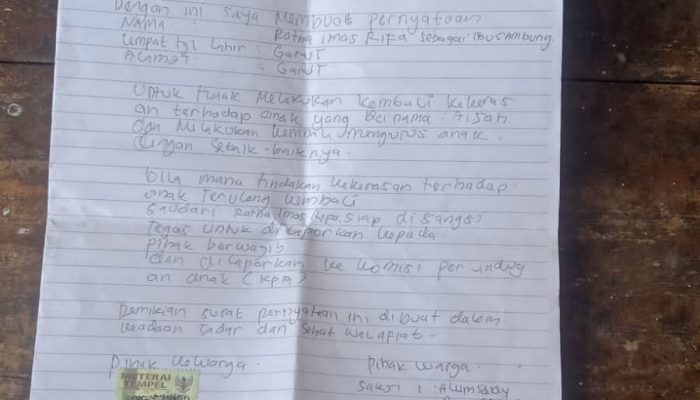 Dengan ini saya membuat pernyataan
Nama : Ratna Imas Rifa sebagai ibu sambung.
Tempat tgl lahir : Garut
Alamat : Garut
Untuk tidak melakukan kembali kekeras
an terhadap anak yang bernama Aisah
dan melakukan kembali mengurus anak
dengan sebaik-baiknya.
bila mana tindakan kekerasan terhadap
anak terulang kembali
saudari Ratna Imas siap di sangsi
tegas untuk di laporkan kepada
pihak berwajib
dan di laporkan ke komisi perlindung
an anak (KPA)
Demikian surat pernyataan ini di buat dalam
keadaan sadar dan sehat walapiat.
Pihak keluarga Pihak warga.
METERAI
TEMPEL
Saksi 1 :